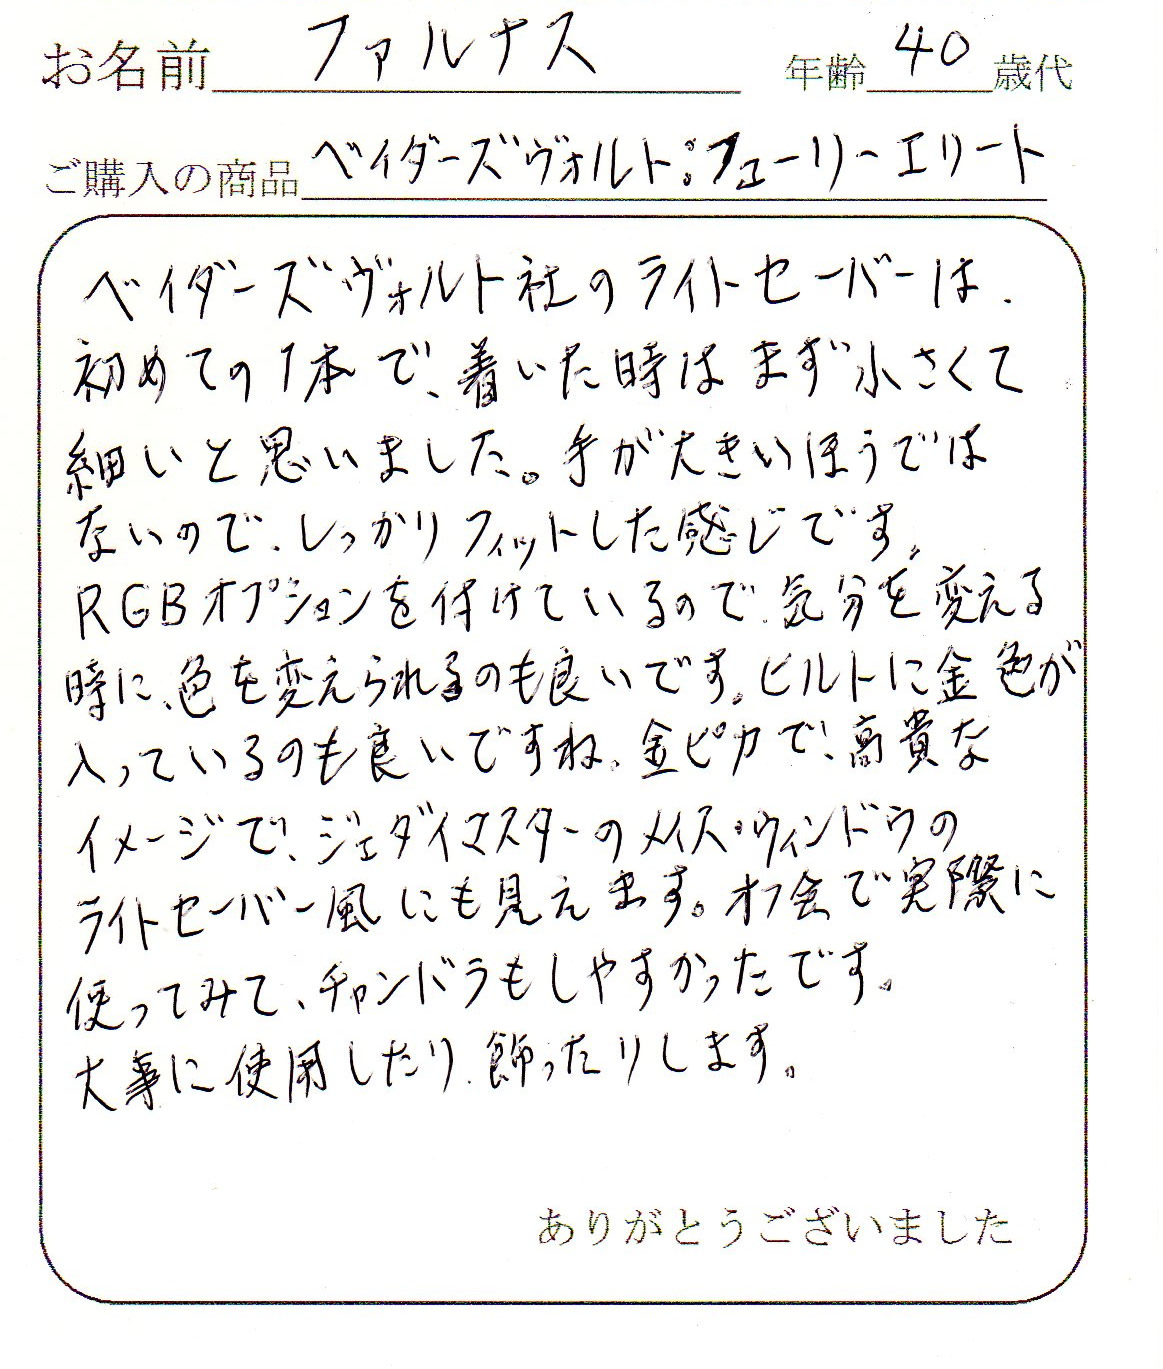 お名前 ファルナス 年齢 40 歳代
ご購入の商品 ベイダーズヴォルト:フューリーエリート
ベイダーズヴォルト社のライトセーバーは、
初めての1本で、着いた時はまず小さくて
細いと思いました。手が大きいほうでは
ないので、しっかりフィットした感じです。
RGBオプションを付けているので、気分を変える
時に、色を変えられるのも良いです。ヒルトに金色が
入っているのも良いですね。金ピカで、高貴な
イメージで、ジェダイマスターのメイス・ウィンドウの
ライトセーバー風にも見えます。オフ会で実際に
使ってみて、チャンドラもしやすかったです。
大事に使用したり、飾ったりします。
ありがとうございました